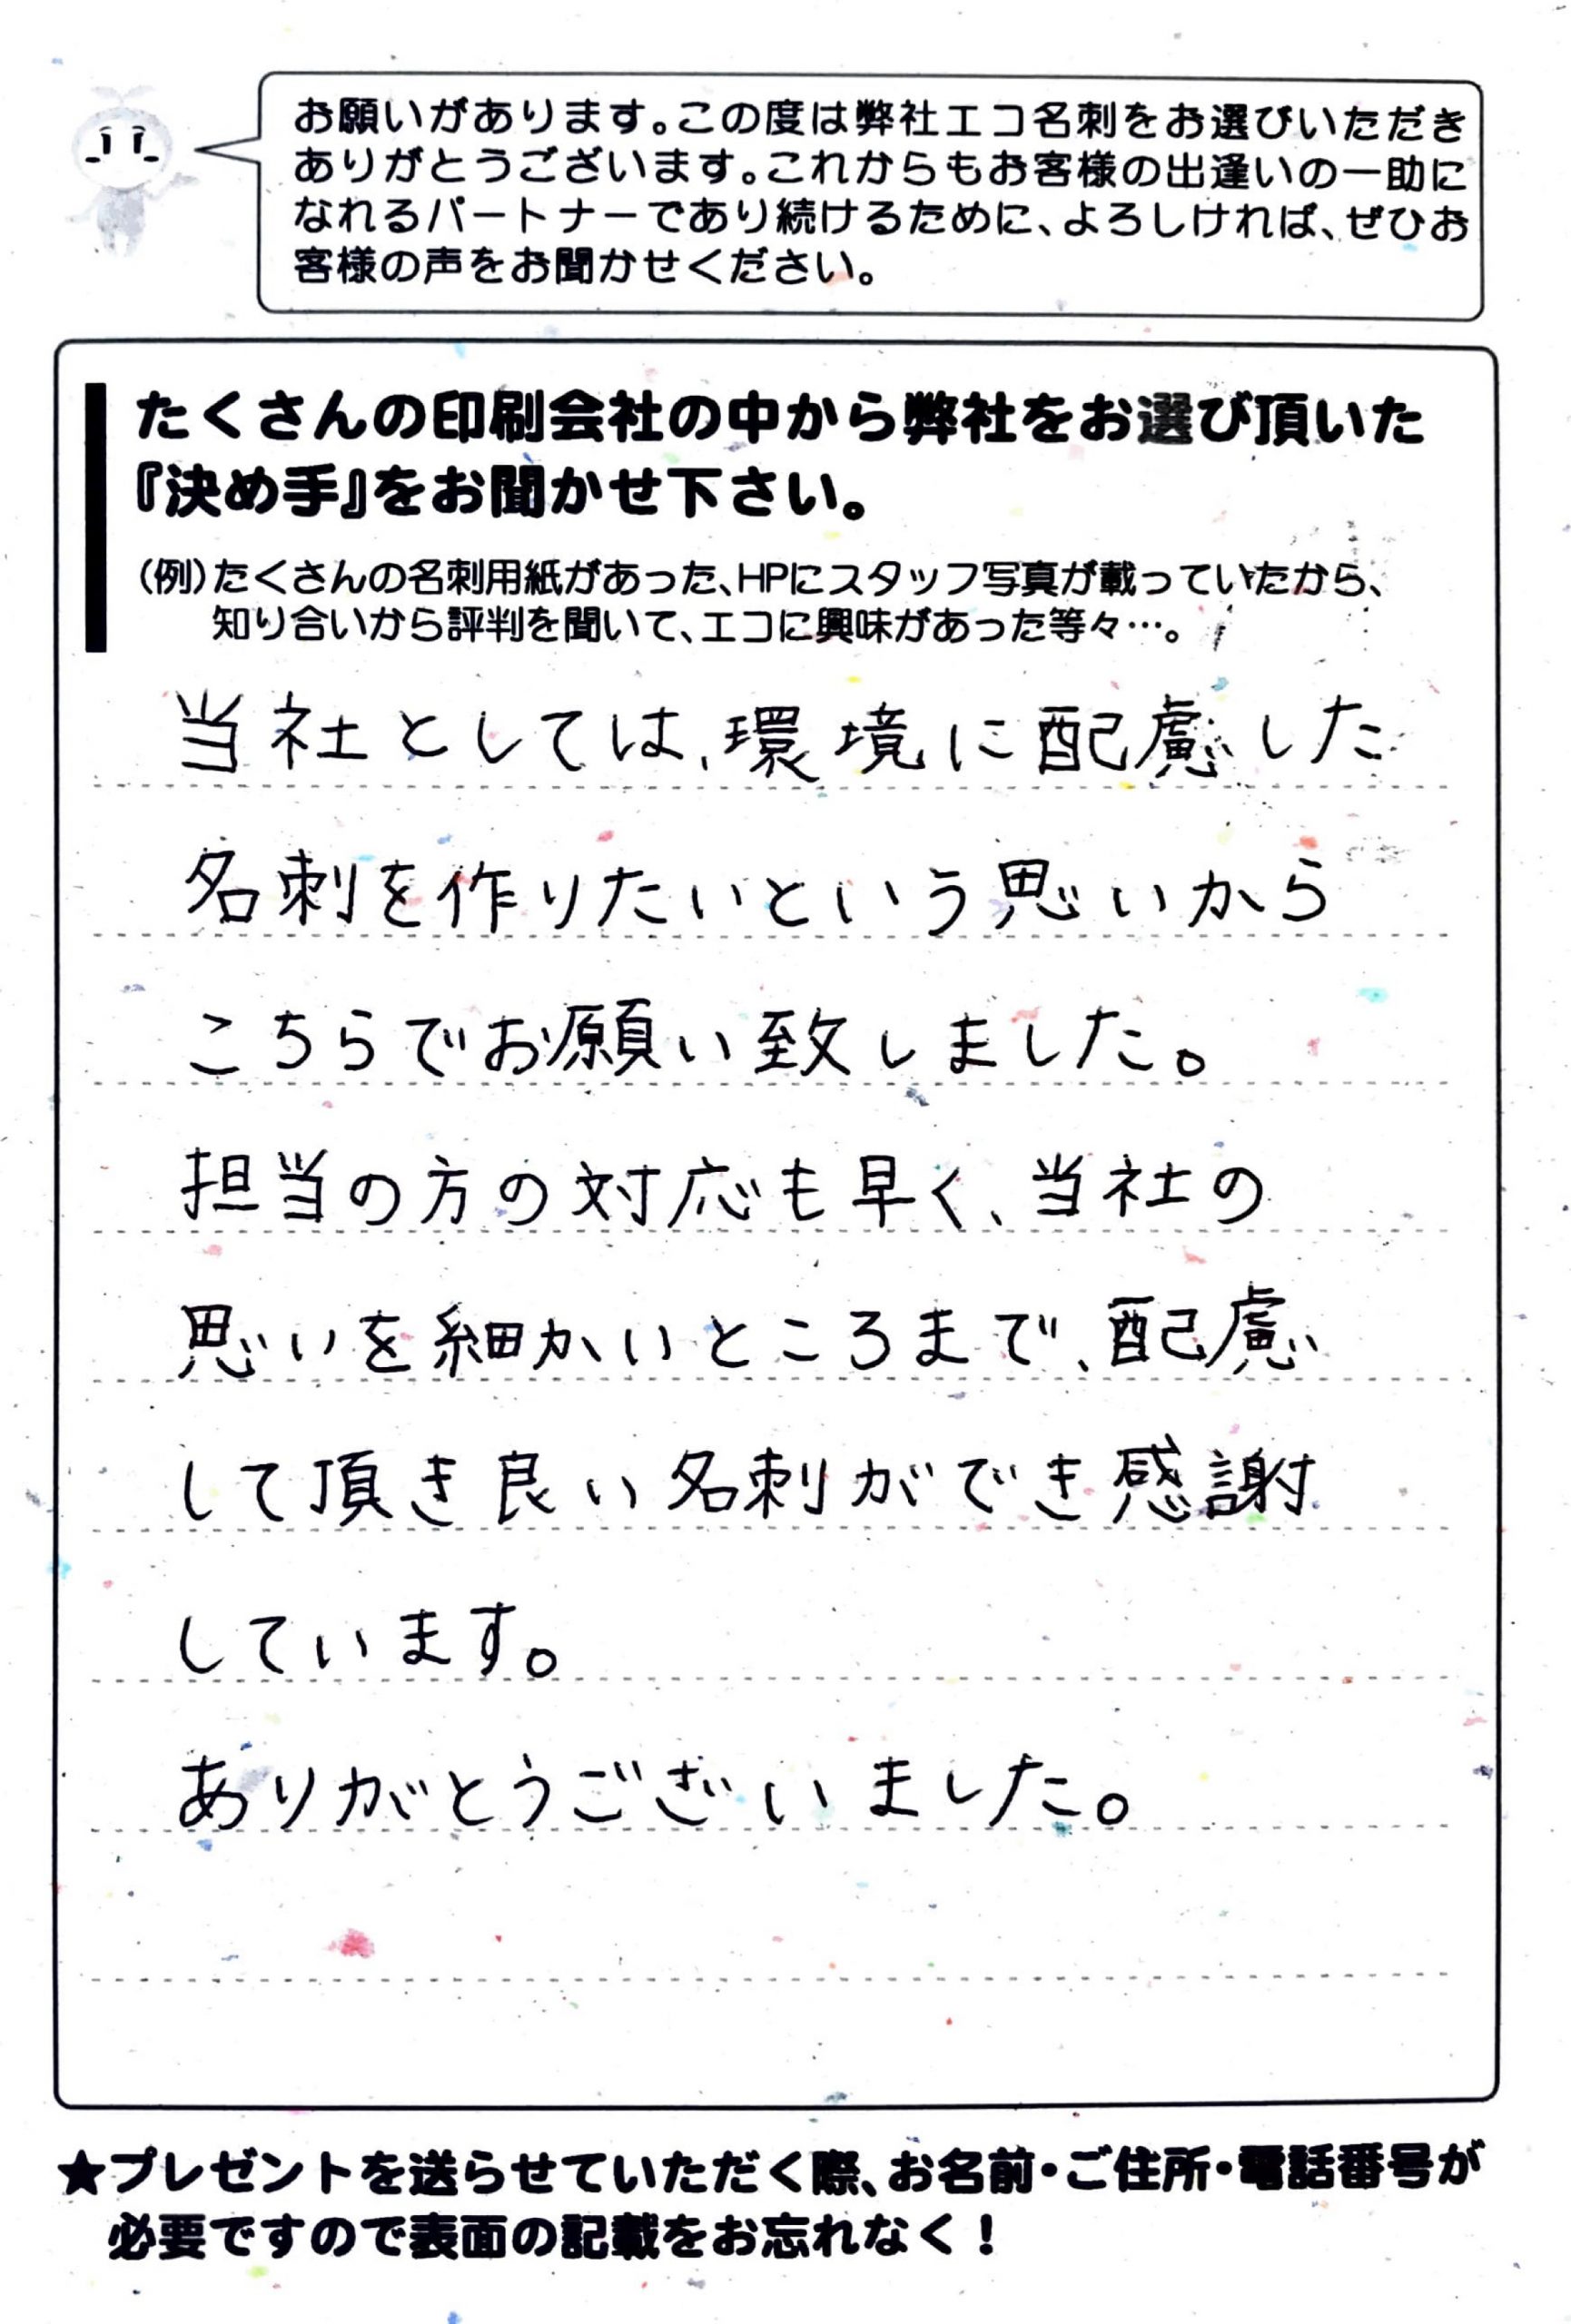 お願いがあります。この度は弊社エコ名刺をお選びいただき
ありがとうございます。これからもお客様の出逢いの一助に
なれるパートナーであり続けるために、よろしければ、ぜひお
客様の声をお聞かせください。
たくさんの印刷会社の中から弊社をお選び頂いた
『決め手』をお聞かせ下さい。
(例)たくさんの名刺用紙があった、HPにスタッフ写真が載っていたから、
知り合いから評判を聞いて、エコに興味があった等々…。
当社としては、環境に配慮した
名刺を作りたいという思いから
こちらでお願い致しました。
担当の方の対応も早く、当社の
思いを細かいところまで、配慮
して頂き良い名刺ができ感謝
しています。
ありがとうございました。
★プレゼントを送らせていただく際、お名前・ご住所・電話番号が
必要ですので表面の記載をお忘れなく！